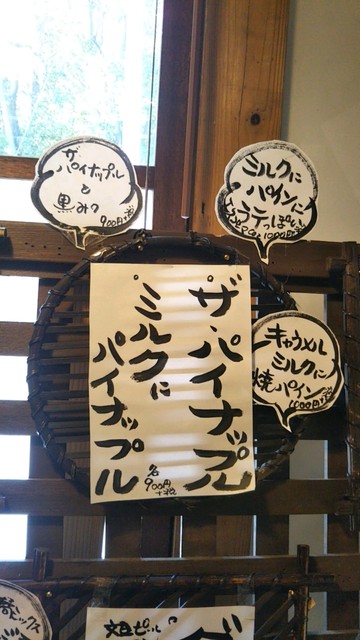 ザ・パイナップル
ミルクに
パイナップル
各
900円
+税
ザ
パイナップル
と
黒みつ
900円+税
ミルクに
パインに
1000円+税
キャラメル
ミルクに
焼パイン
1000円+税